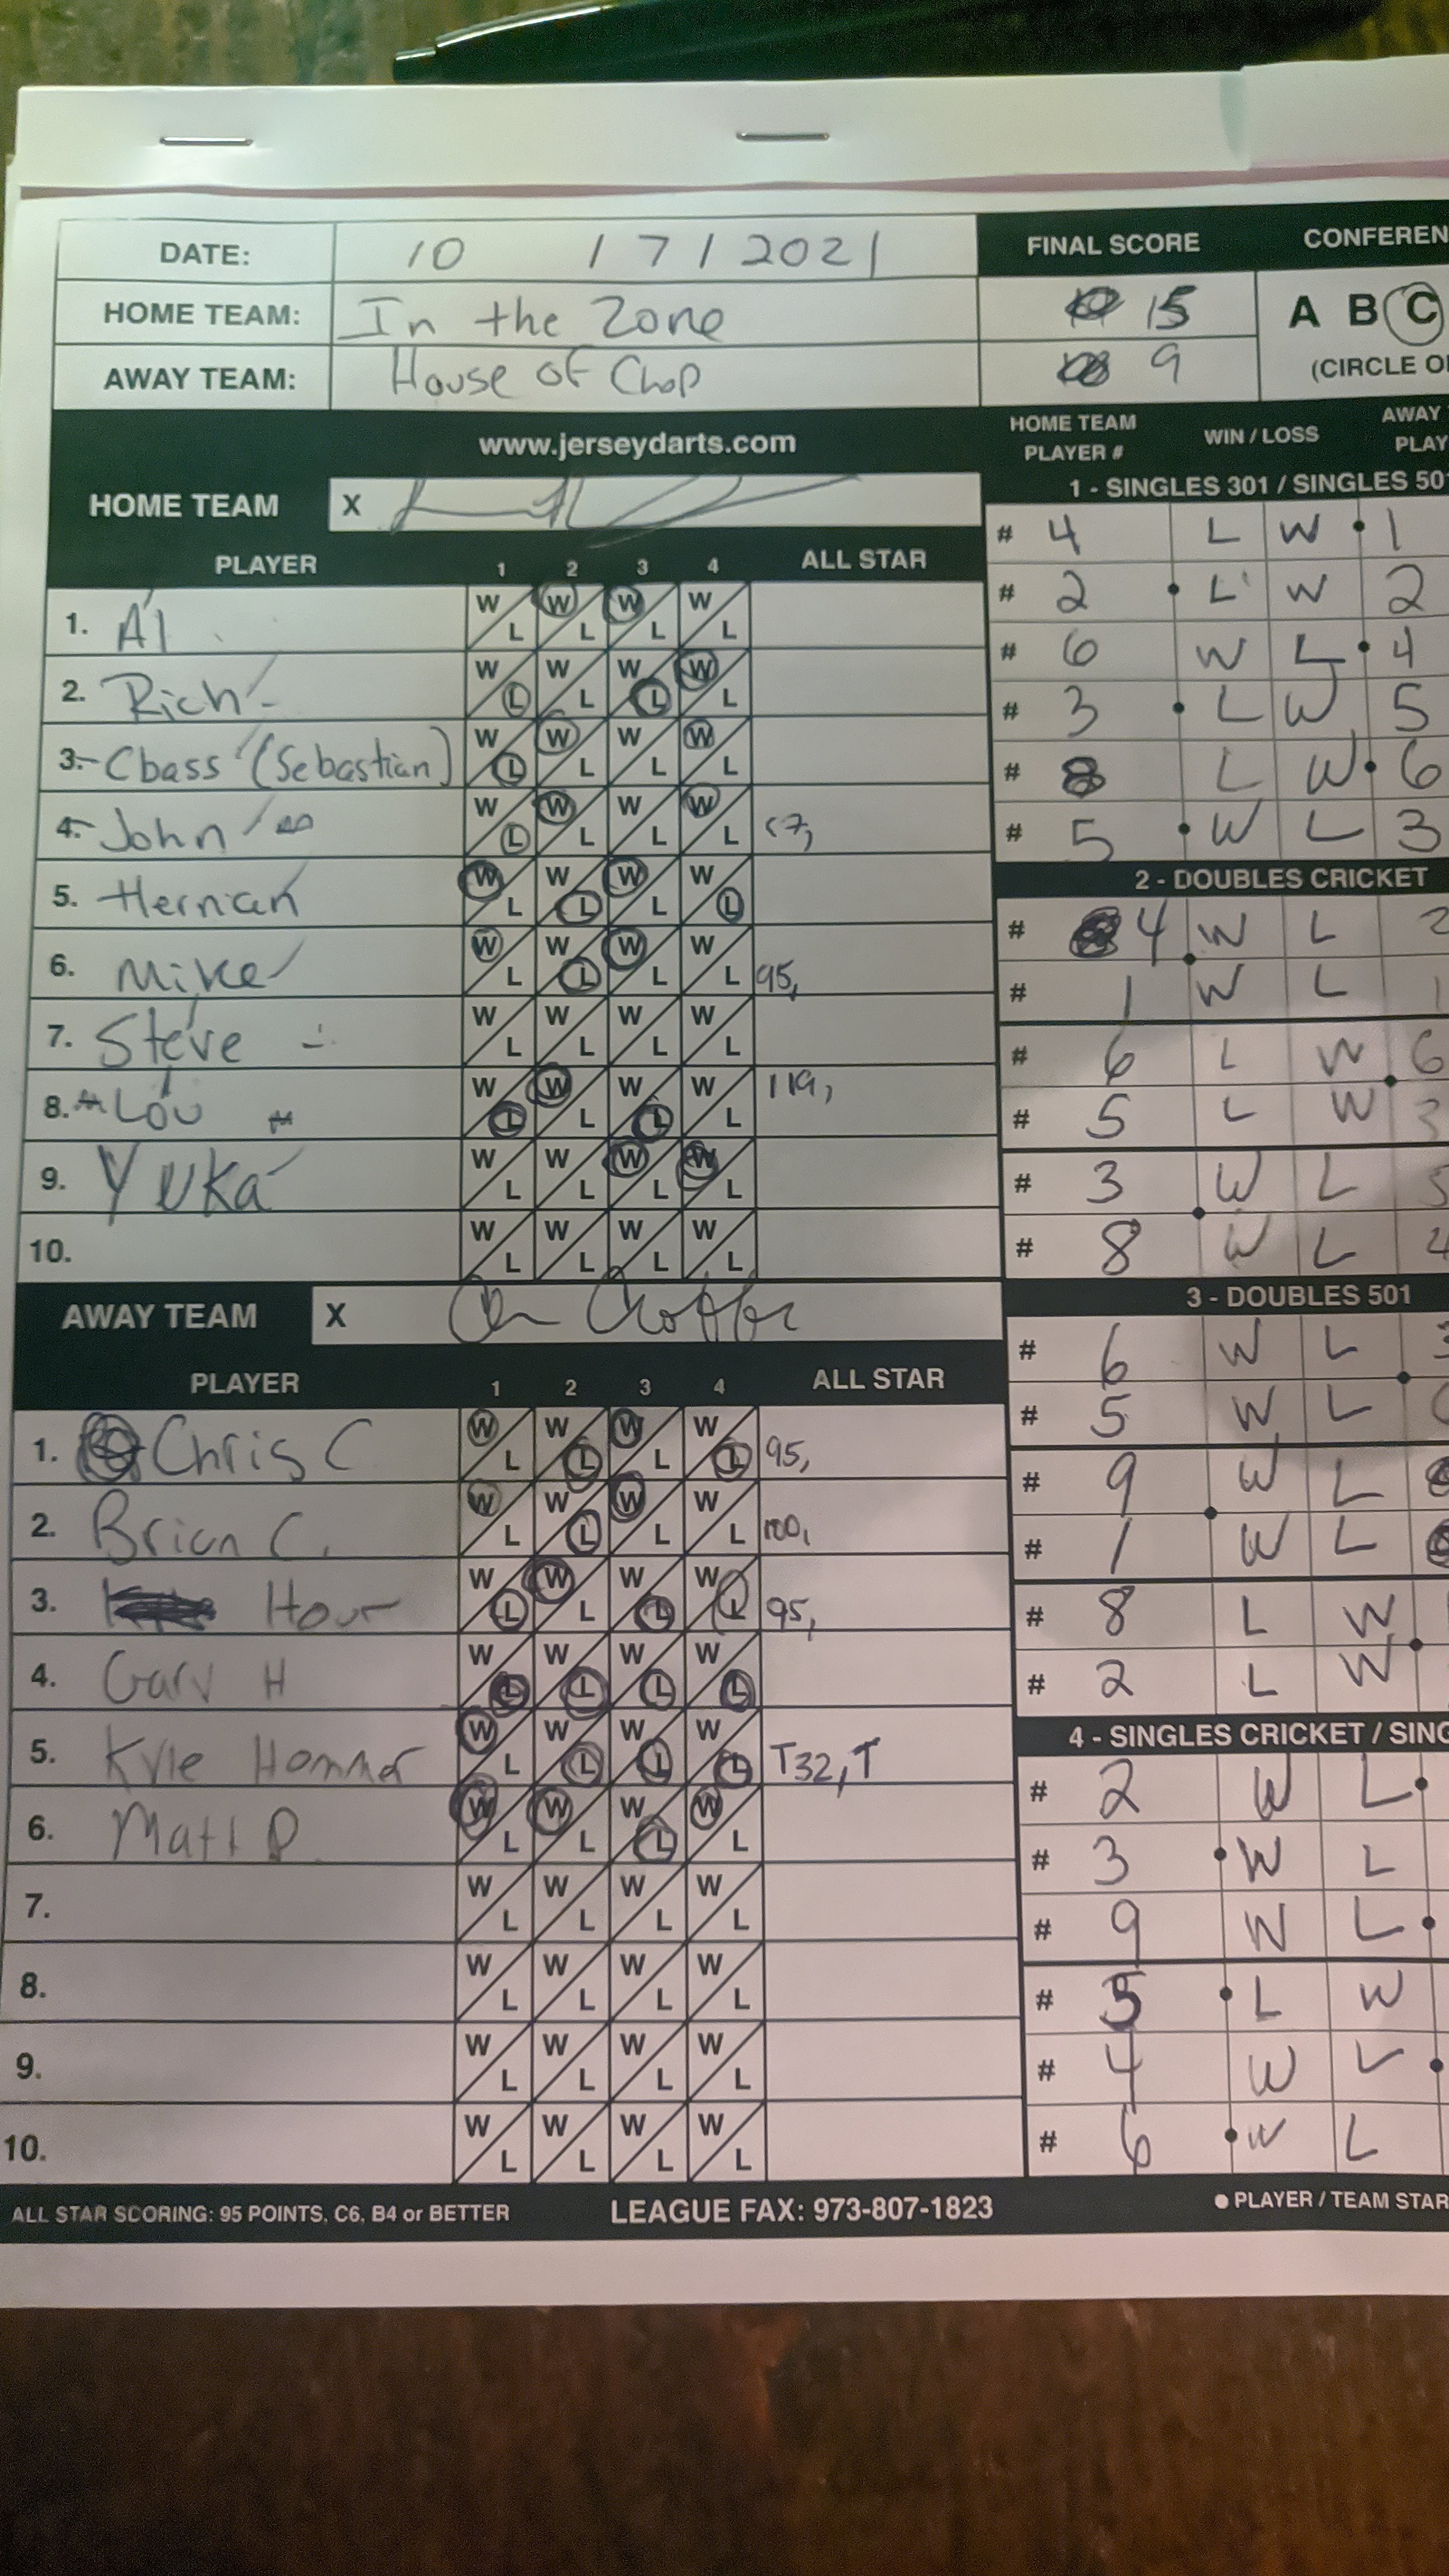 DATE: 10 / 7 / 2021
HOME TEAM: In the Zone
AWAY TEAM: House of Chop
FINAL SCORE CONFEREN
15
9
A B C
(CIRCLE O
www.jerseydarts.com
HOME TEAM X
PLAYER 1 2 3 4 ALL STAR
1. Al W L W L W L W L
2. Rich W L W L W L W L
3. Cbass (Sebastian) W L W L W L W L
4. John W L W L W L W L C7,
5. Hernan W L W L W L W L
6. Mike W L W L W L W L 95,
7. Steve W L W L W L W L
8. Lou W L W L W L W L 119,
9. Yuka W L W L W L W L
10. W L W L W L W L
AWAY TEAM X
PLAYER 1 2 3 4 ALL STAR
1. Chris C W L W L W L W L 95,
2. Brian C. W L W L W L W L 100,
3. Hour W L W L W L W L 95,
4. Gary H W L W L W L W L
5. Kyle Hommer W L W L W L W L T32, T
6. Matt D W L W L W L W L
7. W L W L W L W L
8. W L W L W L W L
9. W L W L W L W L
10. W L W L W L W L
HOME TEAM PLAYER # WIN / LOSS AWAY PLAY
1 - SINGLES 301 / SINGLES 501
# 4 L W 1
# 2 L W 2
# 6 W L 4
# 3 L W 5
# 8 L W 6
# 5 W L 3
2 - DOUBLES CRICKET
# 4 W L 2
# 1 W L 1
# 6 L W 6
# 5 L W 3
# 3 W L 5
# 8 W L 4
3 - DOUBLES 501
# 6 W L 3
# 5 W L
# 9 W L
# 1 W L
# 8 L W
# 2 L W
4 - SINGLES CRICKET / SING
# 2 W L
# 3 W L
# 9 W L
# 5 L W
# 4 W L
# 6 W L
ALL STAR SCORING: 95 POINTS, C6, B4 or BETTER LEAGUE FAX: 973-807-1823 ● PLAYER / TEAM STAR